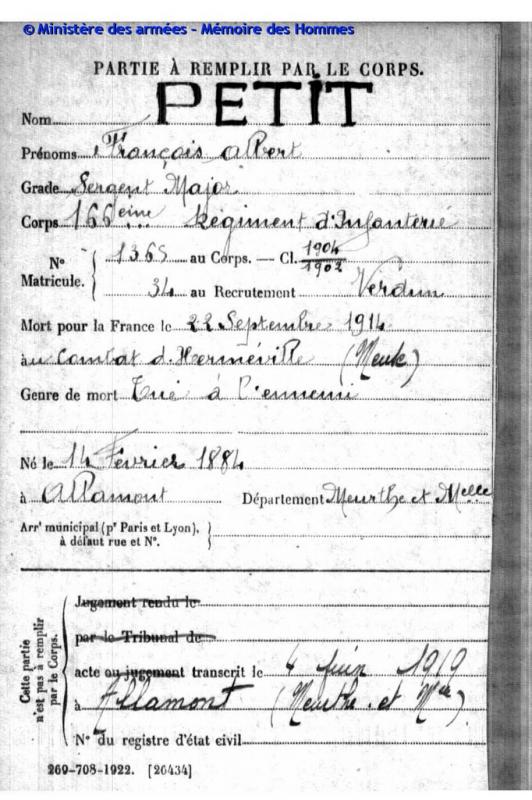 © Ministère des armées - Mémoire des Hommes
PARTIE À REMPLIR PAR LE CORPS.
Nom PETIT
Prénoms François Albert
Grade Sergent Major
Corps 166eme Régiment d'Infanterie
N° Matricule. { 1365 au Corps. — Cl. 1904/1902
34 au Recrutement Verdun
Mort pour la France le 22 Septembre 1914
au combat d'Herméville (Meuse)
Genre de mort Tué à l'ennemi
Né le 14 Février 1884
à Allamont Département Meurthe et Melle
Arrt municipal (pr Paris et Lyon), }
à défaut rue et N°.
Cette partie n'est pas à remplir par le Corps.
Jugement rendu le
par le Tribunal de
acte ou jugement transcrit le 4 juin 1919
à Allamont (Meurthe et Mlle)
N° du registre d'état civil
269-708-1922. [26434]